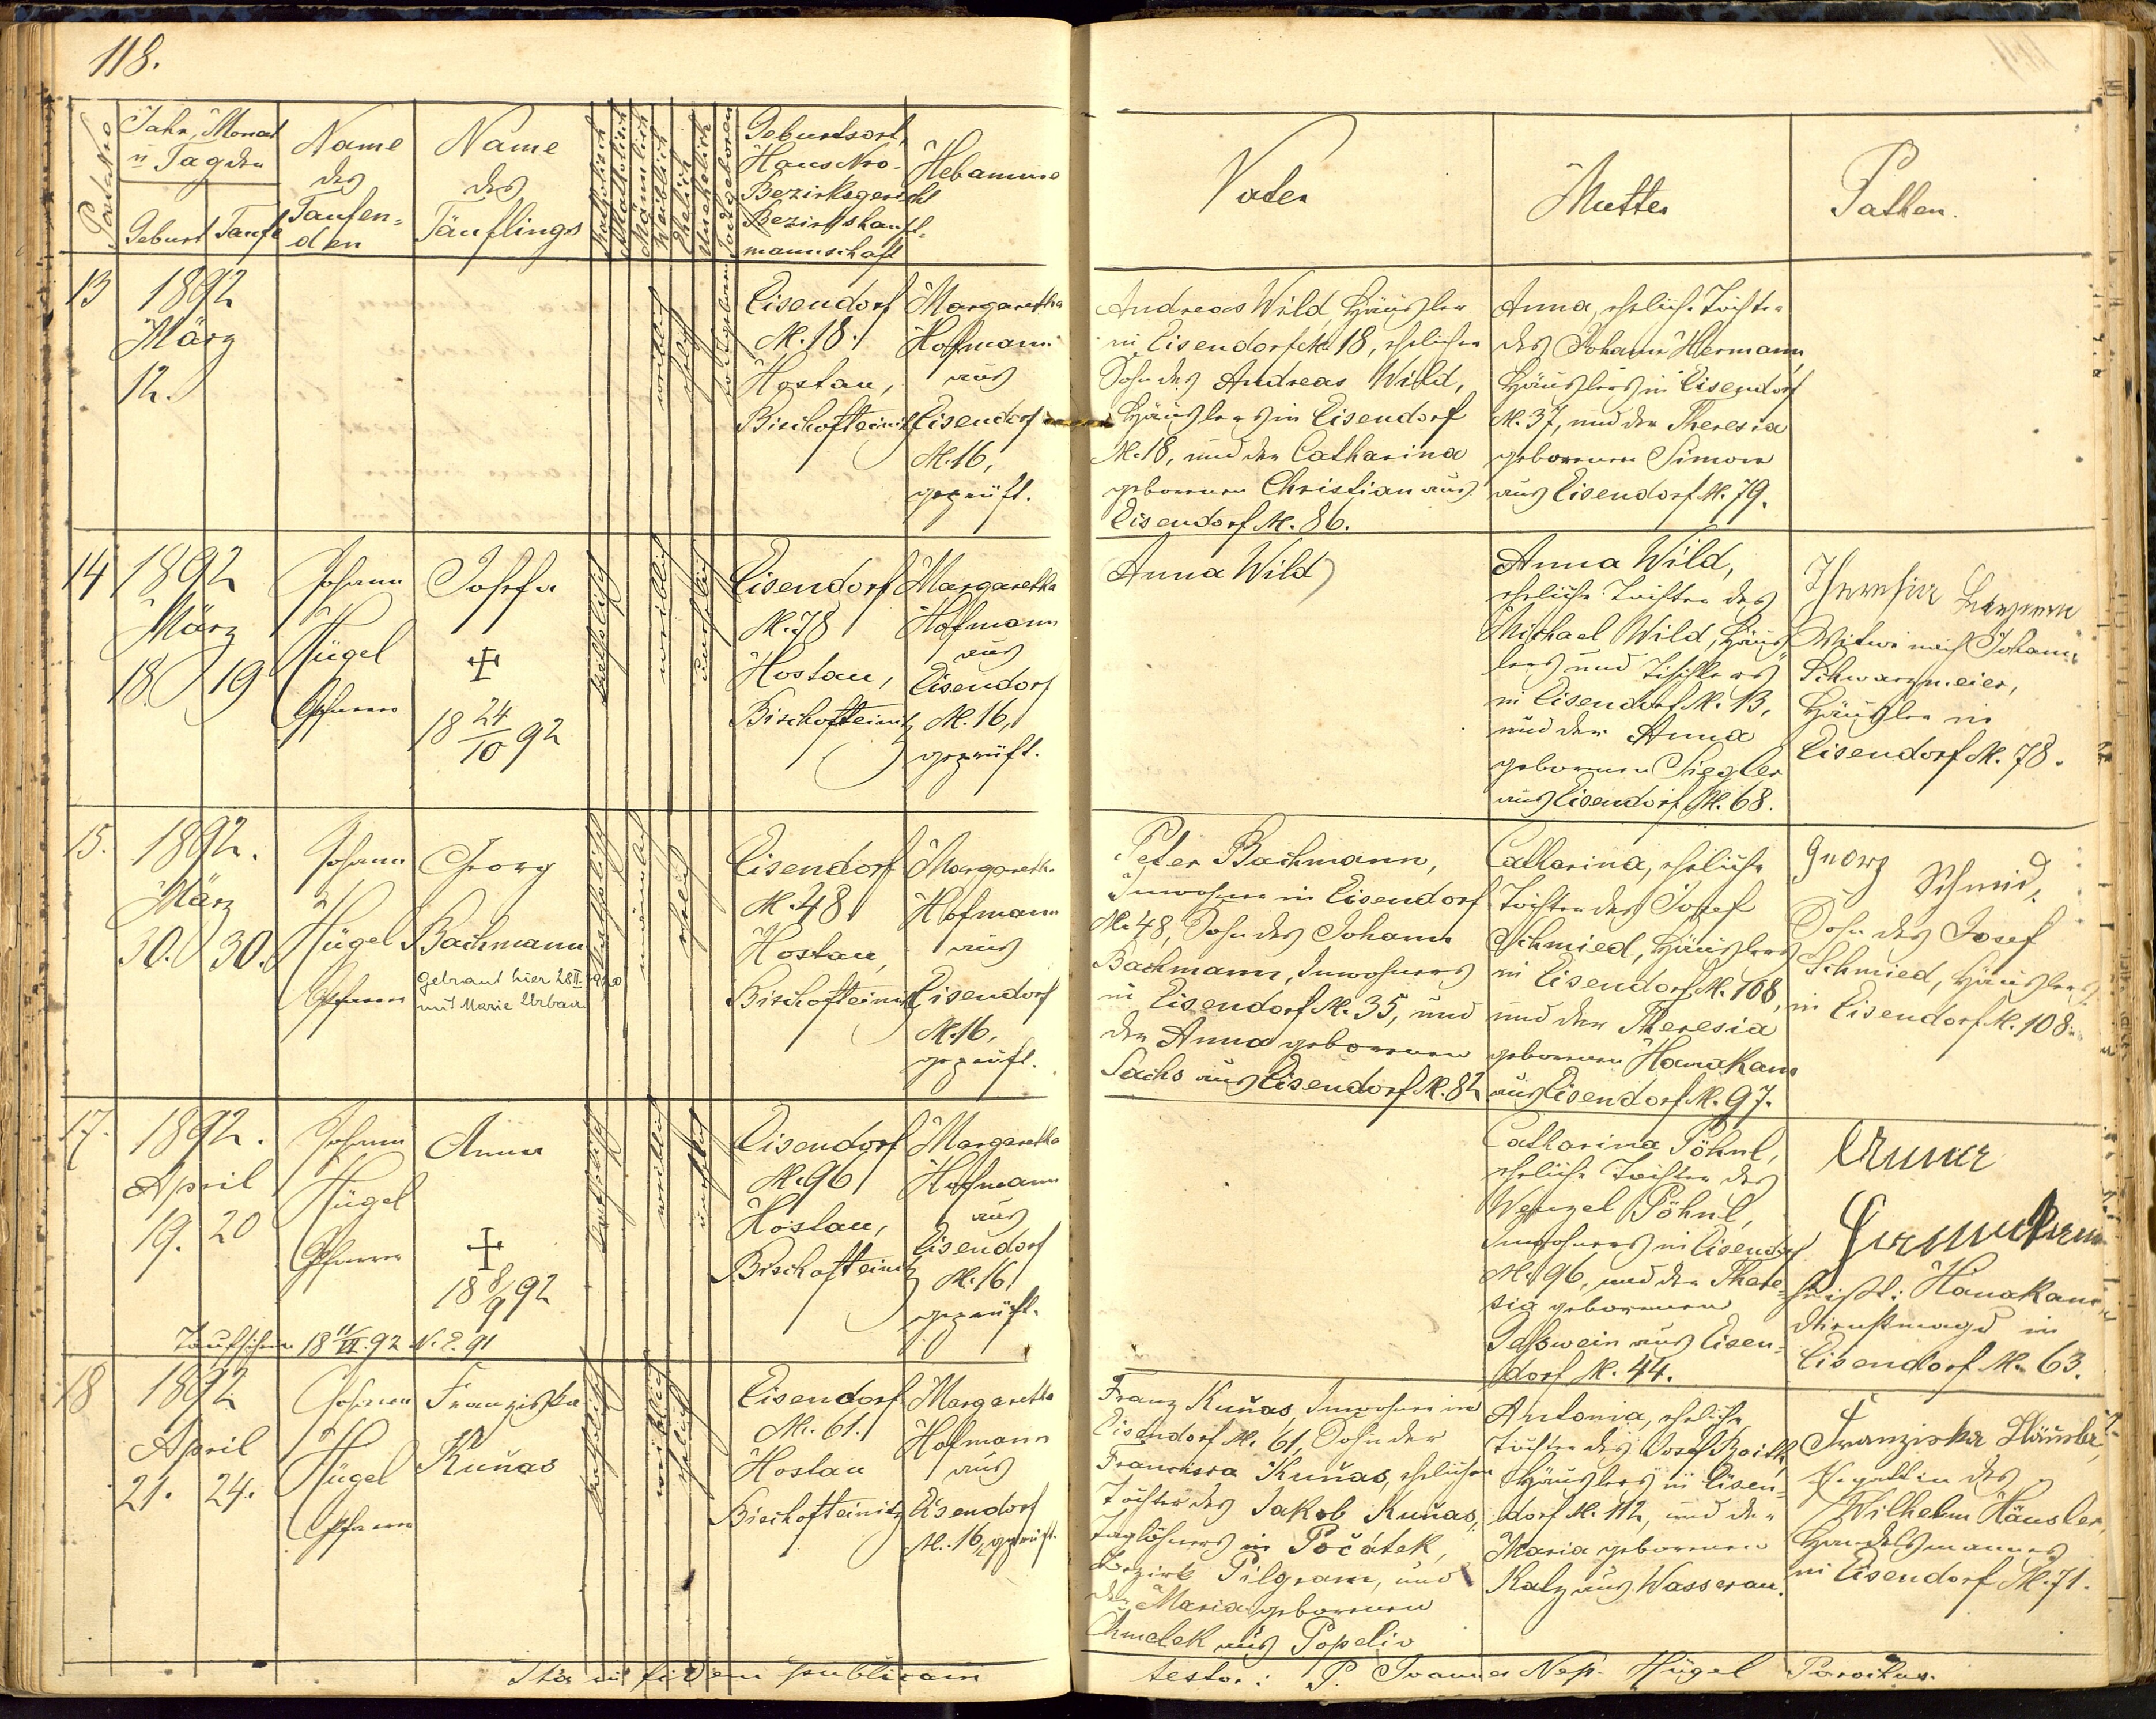 118.
Post Nro
Jahr, Monat
u Tag der
Geburt Taufe
Name
des
Taufen-
den
Name
des
Täuflings
Katholisch
Akatholisch
Männlich
Weiblich
Ehelich
Unehelich
Todtgeboren
Geburtsort,
Haus Nro.
Bezirksgericht
Bezirkshaupt-
mannschaft
Hebamme
Vater
Mutter
Pathen.
13
1892
März
12.
weiblich
ehelich
todtgeboren
Eisendorf
N. 18.
Hostau,
Bischofteinitz
Margaretha
Hofmann
aus
Eisendorf
N. 16,
geprüft.
Andreas Wild, Häusler
in Eisendorf N. 18, ehelicher
Sohn des Andreas Wild,
Häuslers in Eisendorf
N. 18, und der Catharina
geborenen Christian aus
Eisendorf N. 86.
Anna, eheliche Tochter
des Johann Hermann,
Häuslers in Eisendorf
N. 37, und der Theresia
geborenen Simon
aus Eisendorf N. 79.
14
1892
März
18. 19
Johann
Hügel
Pfarrer
Josefa
18 24/10 92
katholisch
weiblich
unehelich
Eisendorf
N. 78
Hostau,
Bischofteinitz
Margaretha
Hofmann
aus
Eisendorf
N. 16,
geprüft.
Anna Wild
Anna Wild,
eheliche Tochter des
Michael Wild, Häus-
lers und Tischlers
in Eisendorf N. 13,
und der Anna
geborenen Siegler
aus Eisendorf N. 68.
Theresia
Witwe nach Johann
Schwarzmeier,
Häusler in
Eisendorf N. 78.
15.
1892.
März
30. 30.
Johann
Hügel
Pfarrer
Georg
Bachmann
Getraut hier 28 II 1920
mit Marie Urban
katholisch
männlich
ehelich
Eisendorf
N. 48
Hostau,
Bischofteinitz
Margaretha
Hofmann
aus
Eisendorf
N. 16,
geprüft.
Peter Bachmann,
Inwohner in Eisendorf
N. 48, Sohn des Johann
Bachmann, Inwohners
in Eisendorf N. 35, und
der Anna geborenen
Sachs aus Eisendorf N. 82
Catharina, eheliche
Tochter des Josef
Schmied, Häuslers
in Eisendorf N. 108,
und der Theresia
geborenen Hanakam
aus Eisendorf N. 97.
Georg
Schmid,
Sohn des Josef
Schmied, Häuslers
in Eisendorf N. 108.
17.
1892.
April
19. 20
Johann
Hügel
Pfarrer
Anna
18 8/9 92
Taufschein 18 11/VI. 92 N. E. 91
katholisch
weiblich
unehelich
Eisendorf
N. 96
Hostau,
Bischofteinitz
Margaretha
Hofmann
aus
Eisendorf
N. 16.
geprüft.
Catharina Pöhnl,
eheliche Tochter des
Wenzel Pöhnl,
Inwohners in Eisendorf
N. 96, und der There-
sia geborenen
Selswein aus Eisen-
dorf N. 44.
Anna
heißt: Hanakam,
Dienstmagd in
Eisendorf N. 63.
18
1892
April
21. 24.
Johann
Hügel
Pfarrer
Franziska
Kuňas
katholisch
weiblich
ehelich
Eisendorf
N. 61.
Hostau
Bischofteinitz
Margaretha
Hofmann
aus
Eisendorf
N. 16, geprüft.
Franz Kuňas, Inwohner in
Eisendorf N. 61, Sohn der
Francisca Kuňas, ehelichen
Tochter des Jakob Kuňas,
Taglöhners in Počátek,
Bezirk Pilgram, und
der Maria geborenen
Chmelek aus Popeliv
Antonia, eheliche
Tochter des Josef
Häuslers in Eisen-
dorf N. 112, und der
Maria geborenen
Kalz aus Wasserau.
Franziska Häusler,
Gattin des
Wilhelm Häusler,
Handelsmannes
in Eisendorf N. 71.
Ita in fidem publicam
testor: P. Joannes Nep. Hügel Parochus.